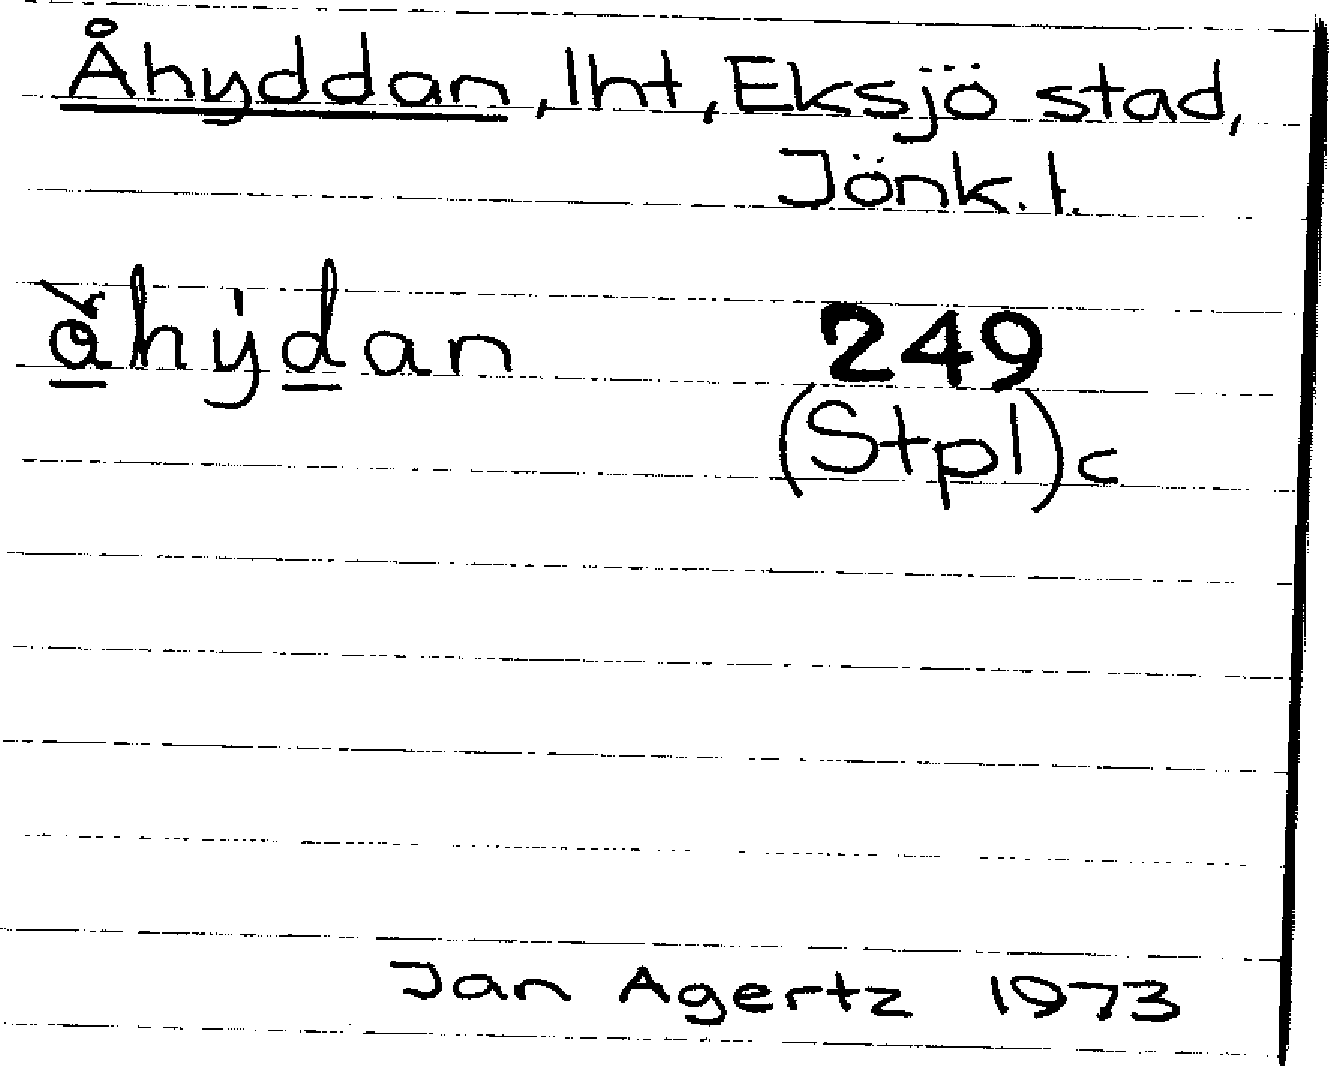 Åhyddan, lht, Eksjö stad,
Jönk. l.
å̀hẏdan 249
(Stpl)c
Jan Agertz 1973